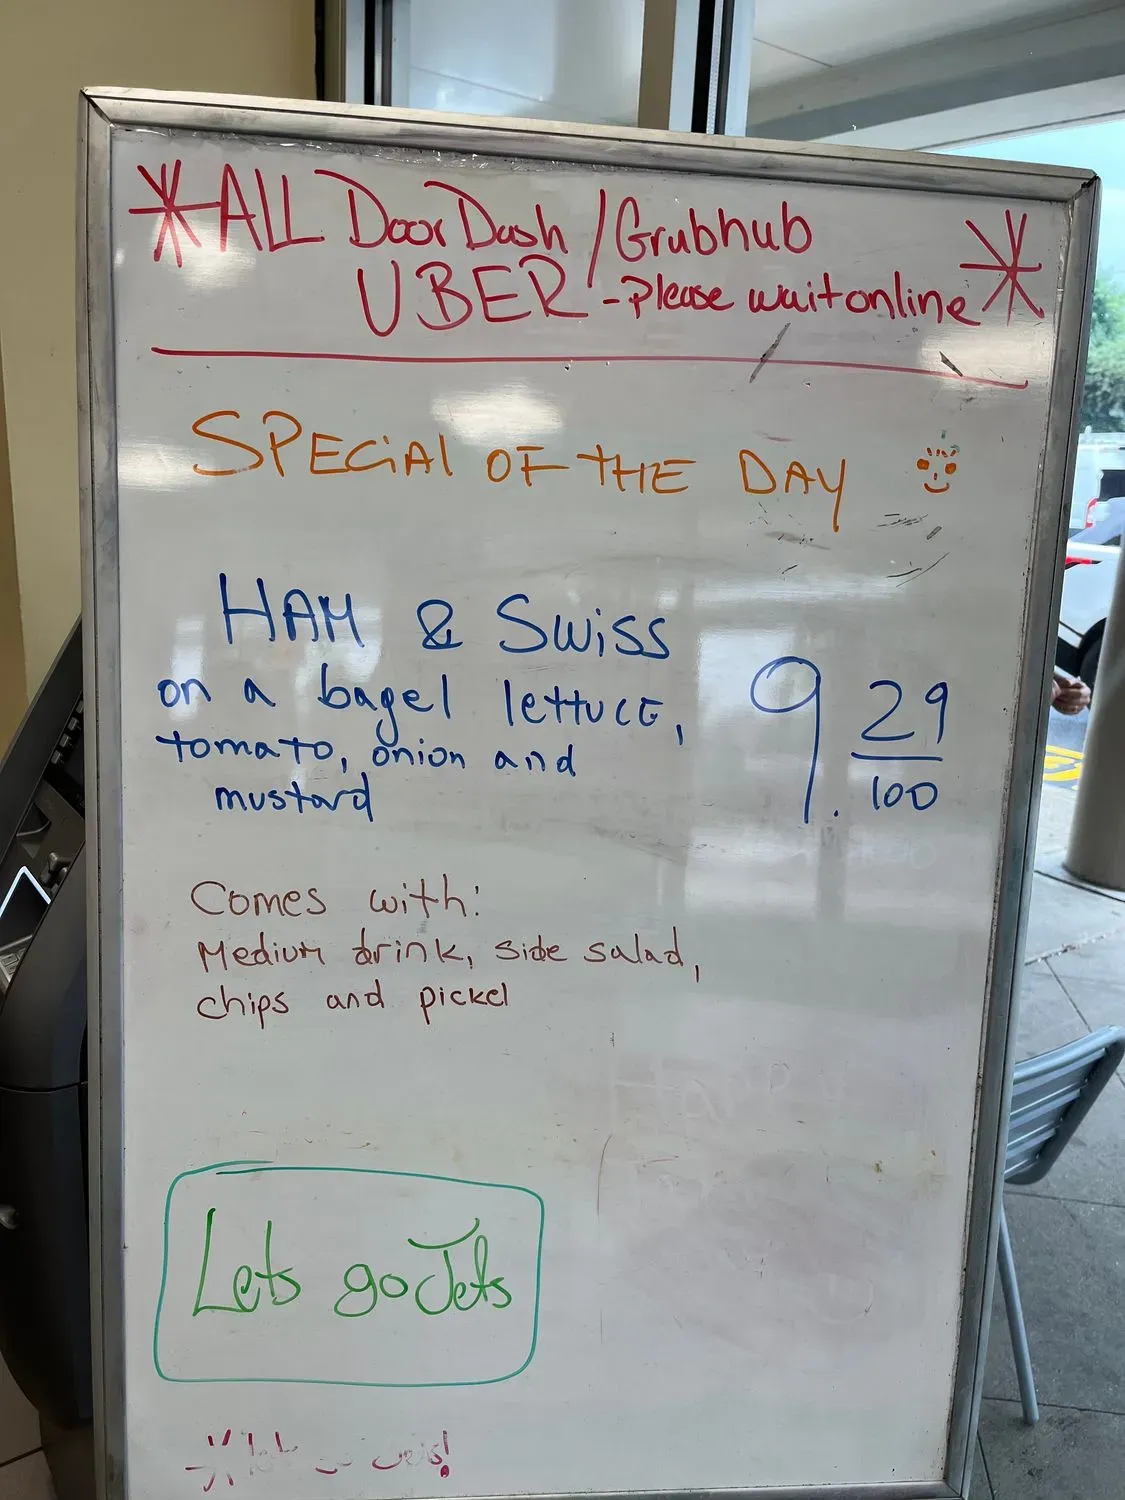 *ALL DoorDash/Grubhub *
UBER -Please wait online
SPECiAl OF THE DAY
HAM & Swiss
on a bagel lettuce,
tomato, onion and
mustard
9. 29/100
Comes with:
Medium drink, side salad,
chips and pickel
Lets go Jets